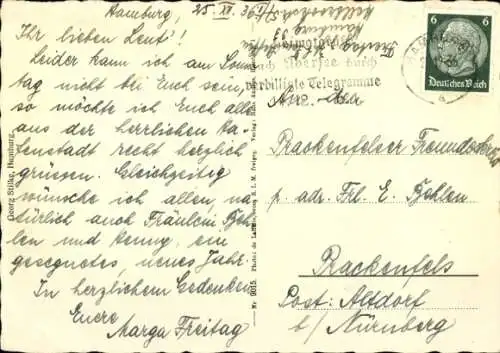 Hamburg, 25. XII. 36
Ihr lieben Leut'!
Leider kann ich am Sonn-
tag nicht bei Euch sein,
so möchte ich Euch alle
aus der herrlichen Ha-
fenstadt recht herzlich
grüssen. Gleichzeitig
wünsche ich allen, na-
türlich auch Fräulein Boh-
len und Henny, ein
gesegnetes, neues Jahr.
In herzlichem Gedenken
Euere
Marga Freitag
Georg Stilke, Hamburg.
Nr. 6615
Freitag
Hamburg 33
nach Übersee durch
verbilligte Telegramme
6 6
Deutsches Reich
a
An den
Rackenfelser Freundeskreis
p. adr. Frl. E. Bohlen
Rackenfels
Post: Altdorf
b/ Nürnberg